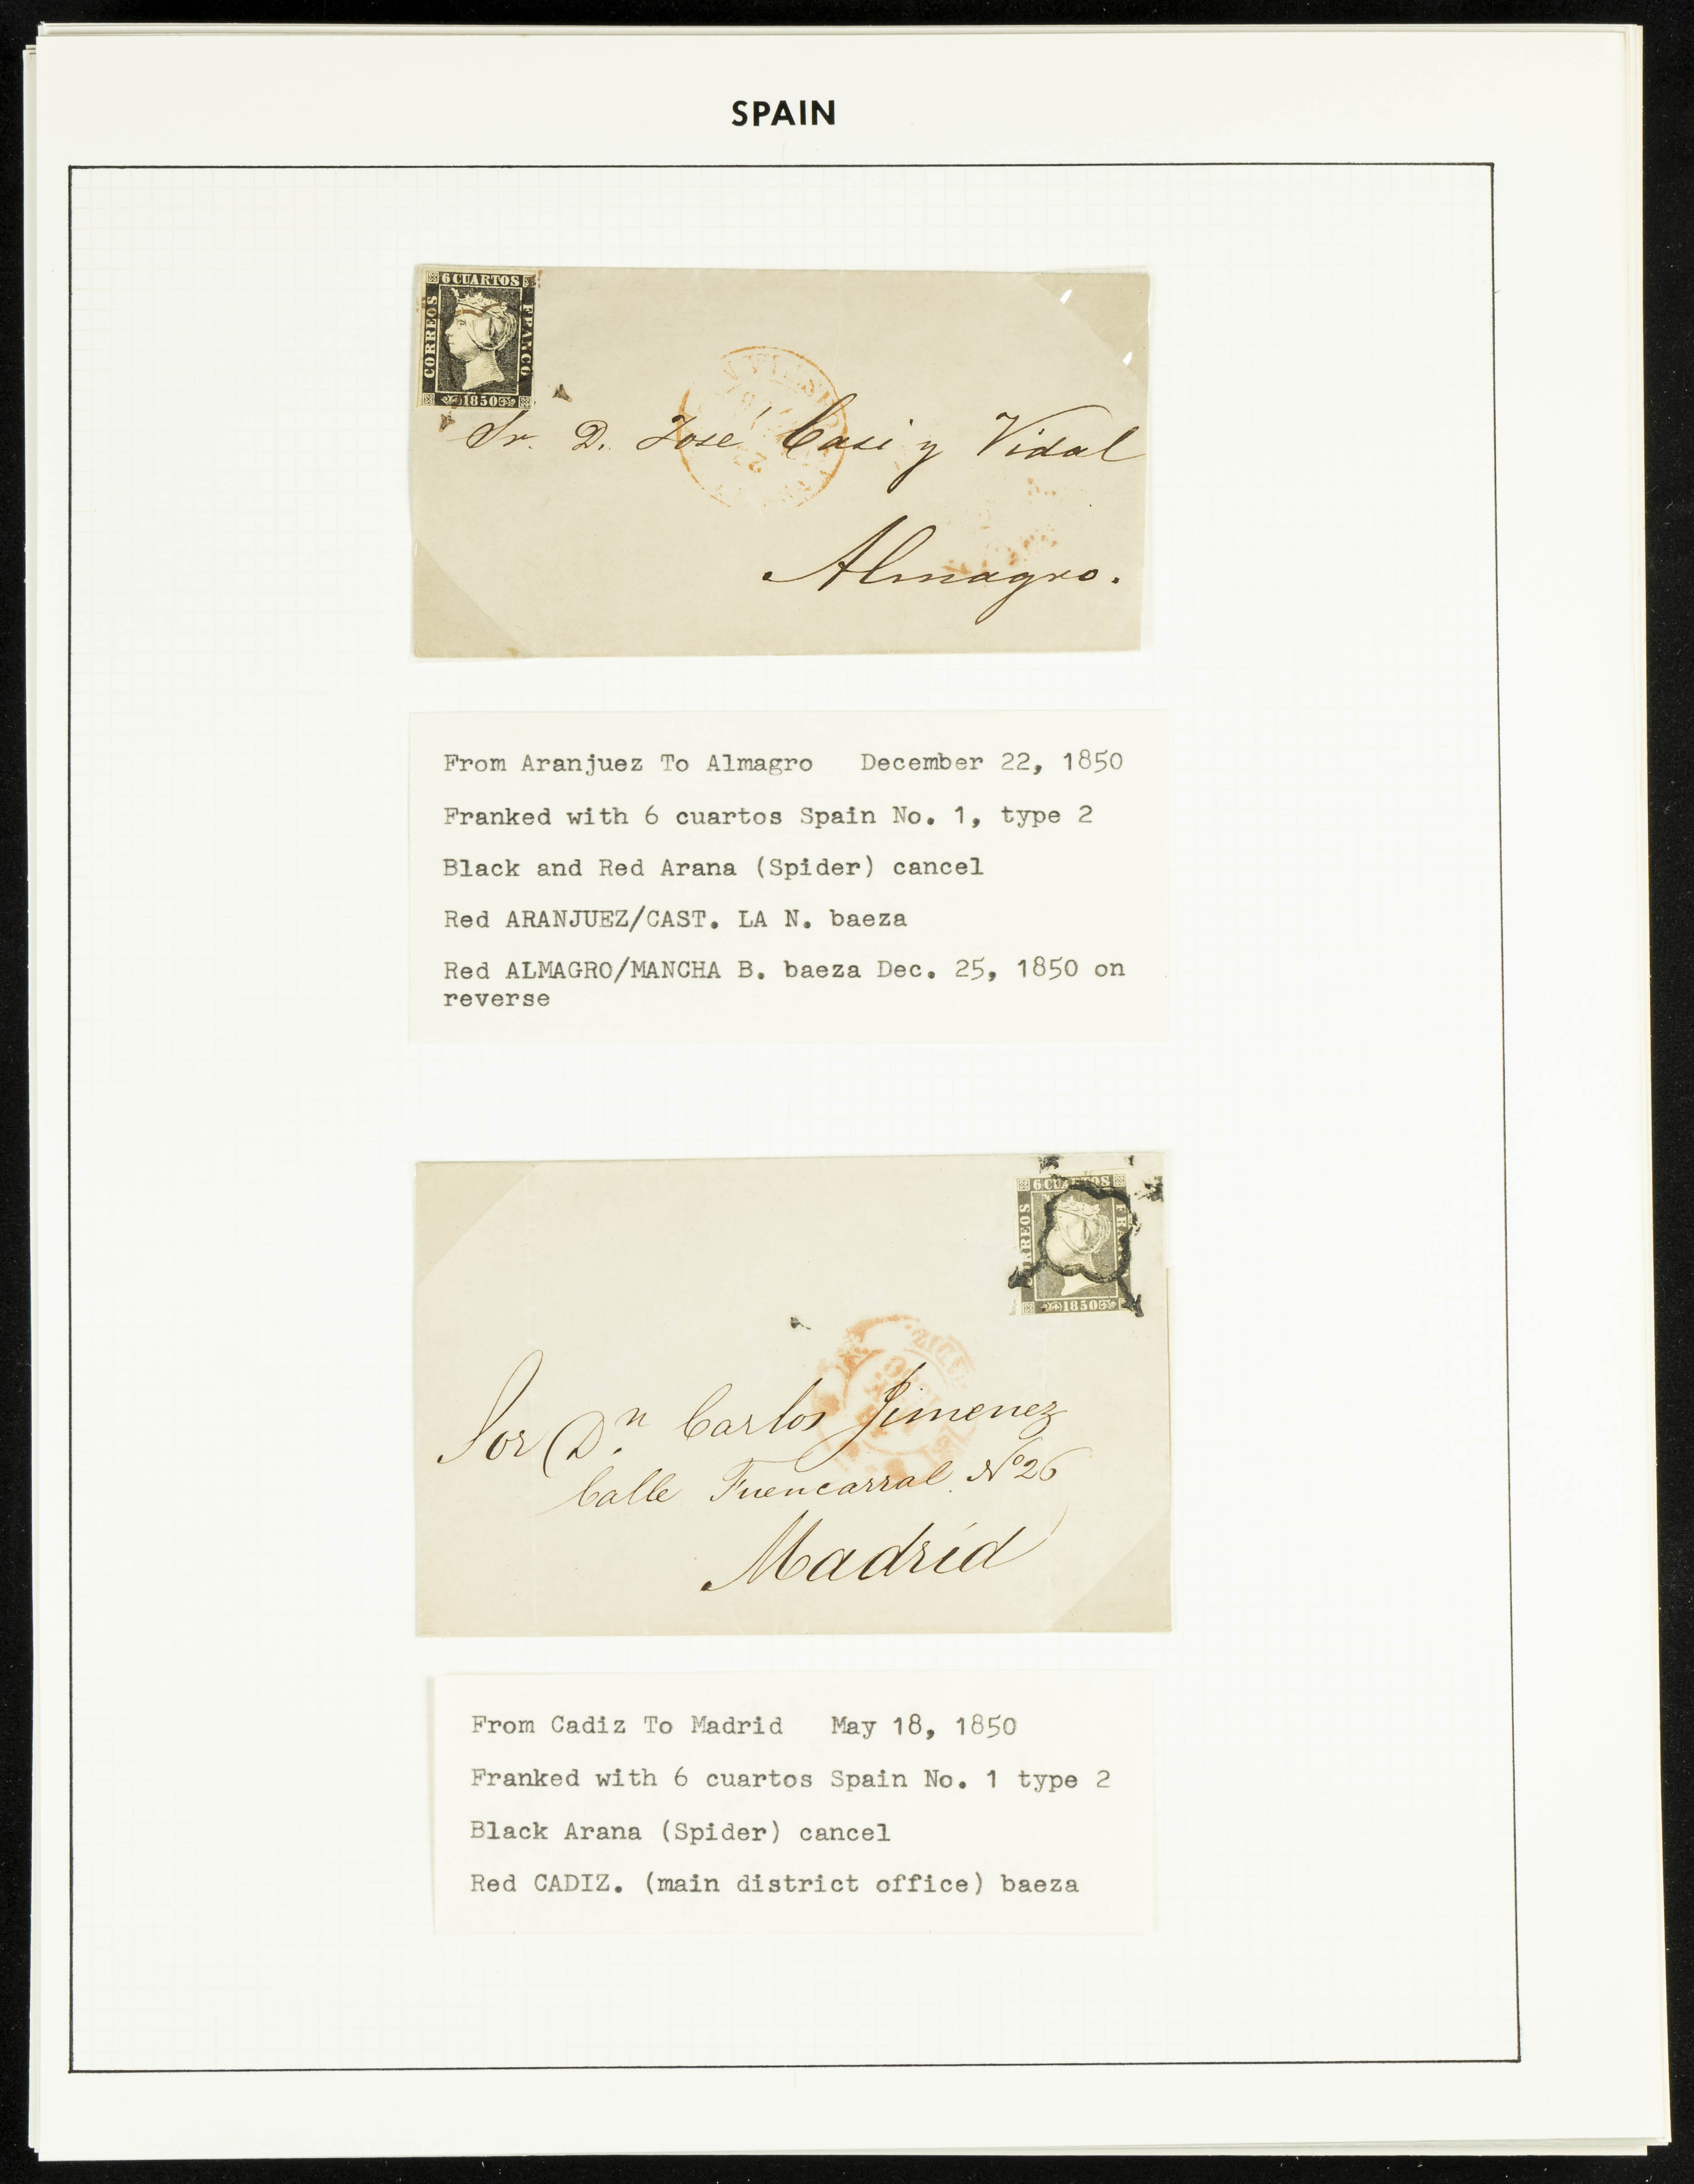 SPAIN
6 CUARTOS
CORREOS
FRANCO
1850
Sr. D. José Casi y Vidal
Almagro.
From Aranjuez To Almagro December 22, 1850
Franked with 6 cuartos Spain No. 1, type 2
Black and Red Arana (Spider) cancel
Red ARANJUEZ/CAST. LA N. baeza
Red ALMAGRO/MANCHA B. baeza Dec. 25, 1850 on
reverse
6 CUARTOS
1850
Sor Dn. Carlos Jimenez
Calle Fuencarral. No 26
Madrid
From Cadiz To Madrid May 18, 1850
Franked with 6 cuartos Spain No. 1 type 2
Black Arana (Spider) cancel
Red CADIZ. (main district office) baeza